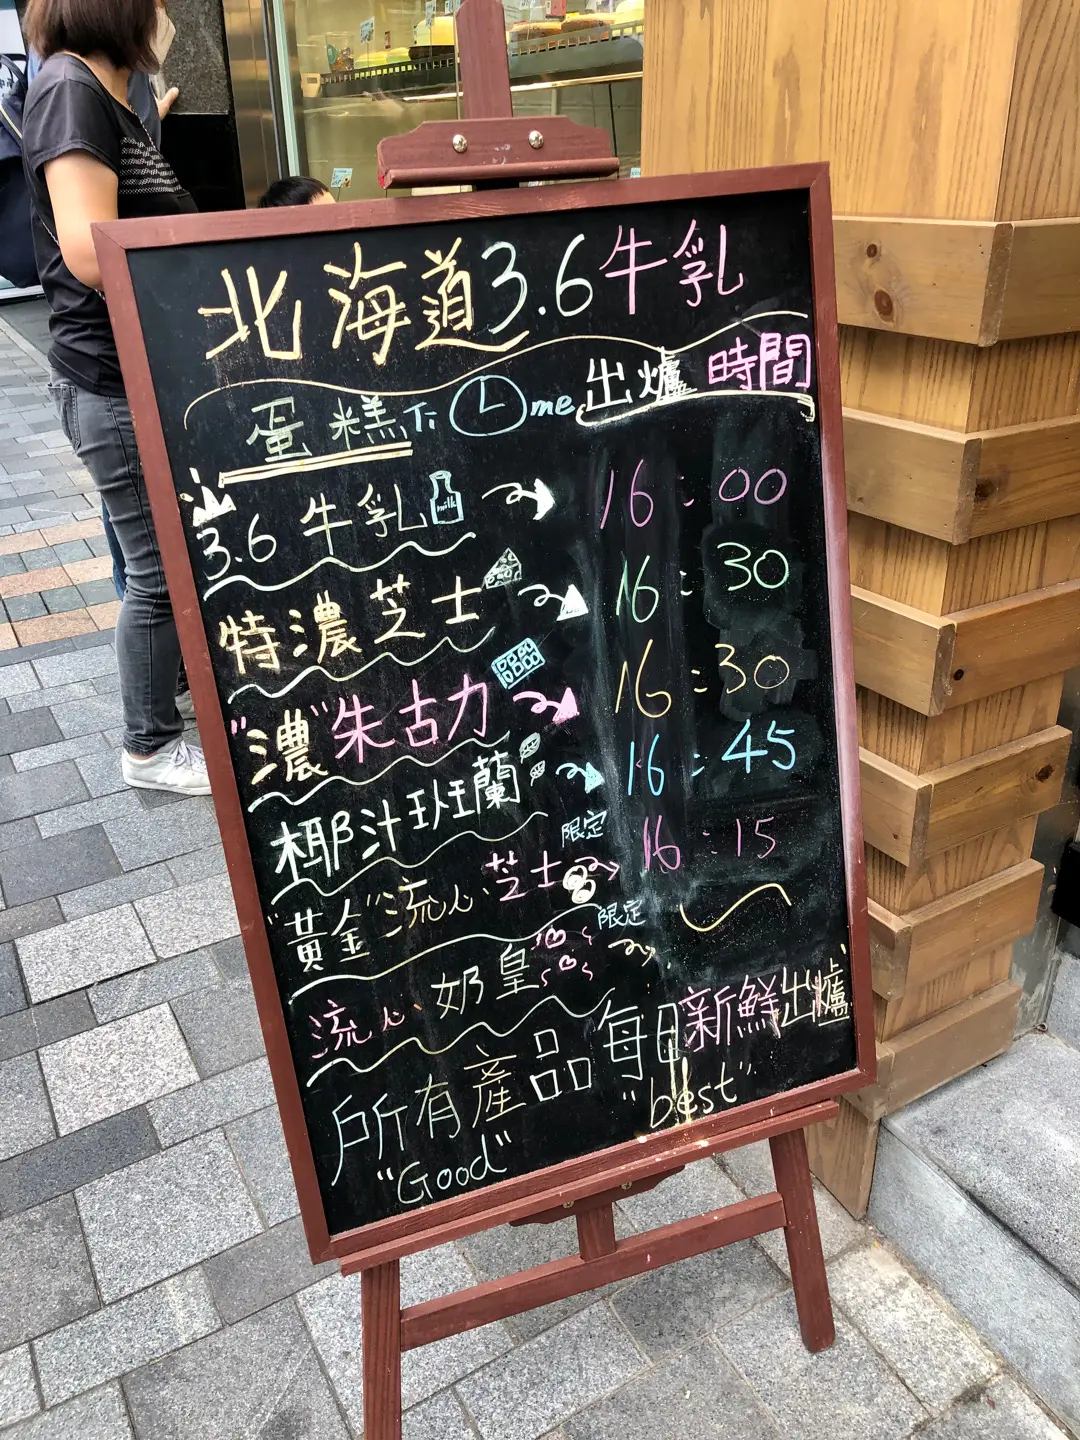 北海道3.6牛乳
蛋糕下 me 出爐時間
3.6牛乳 milk 16:00
特濃芝士 16:30
"濃"朱古力 16:30
椰汁班蘭 16:45
"黃金"流心芝士 限定 16:15
流心奶皇 限定
所有產品每日新鮮出爐
"Good" "best"